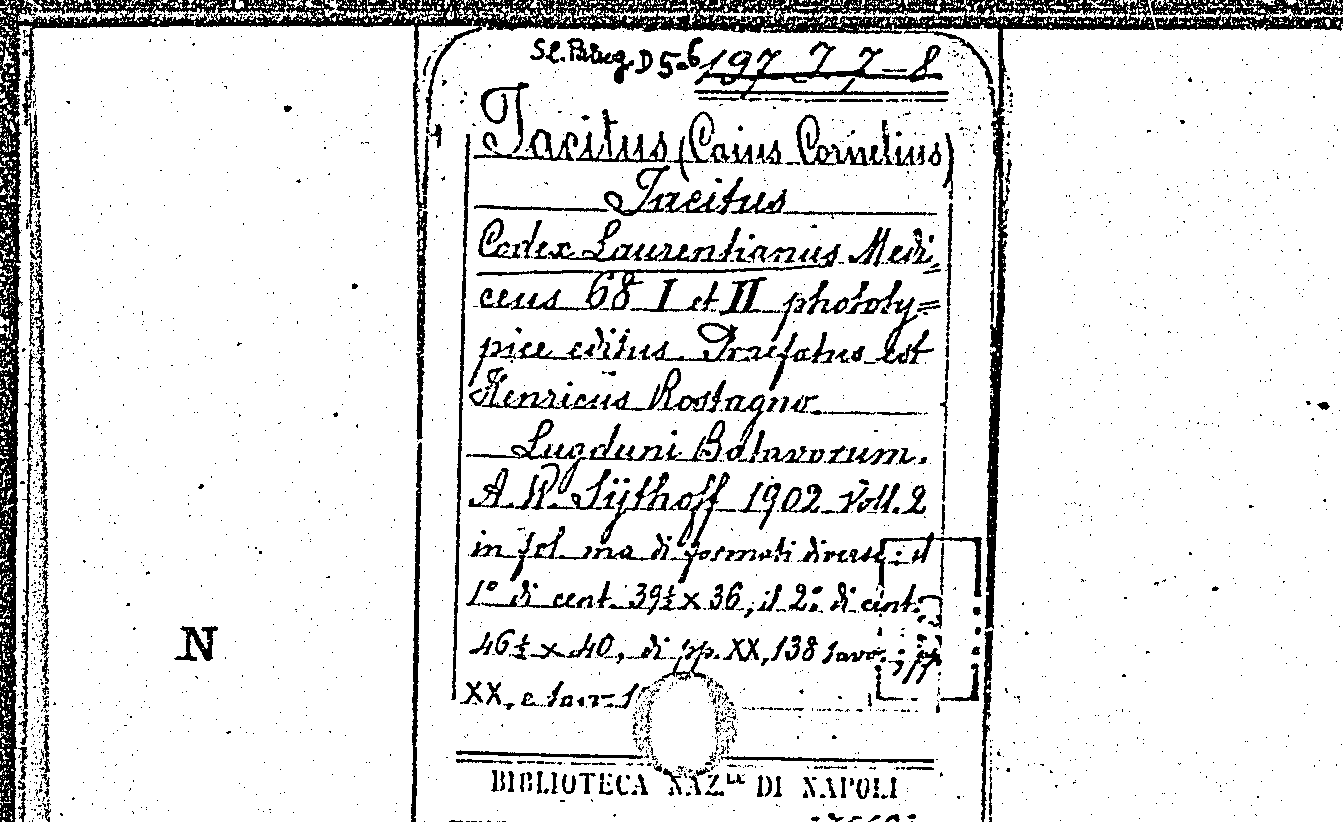 197 7 7-8
Tacitus (Caius Cornelius)
Tacitus
Codex Laurentianus Medi=
ceus 68 I et II phototy=
pice editus. Praefatus est
Henricus Rostagno.
Lugduni Batavorum.
A. W. Sijthoff 1902 Voll. 2
in fol. ma di formati diversi: il
1º di cent. 39½ x 36, il 2º di cent.
46½ x 40, di pp. XX, 138 tavo. ; pp.
XX, e tavv.
N
BIBLIOTECA NAZ.LE DI NAPOLI